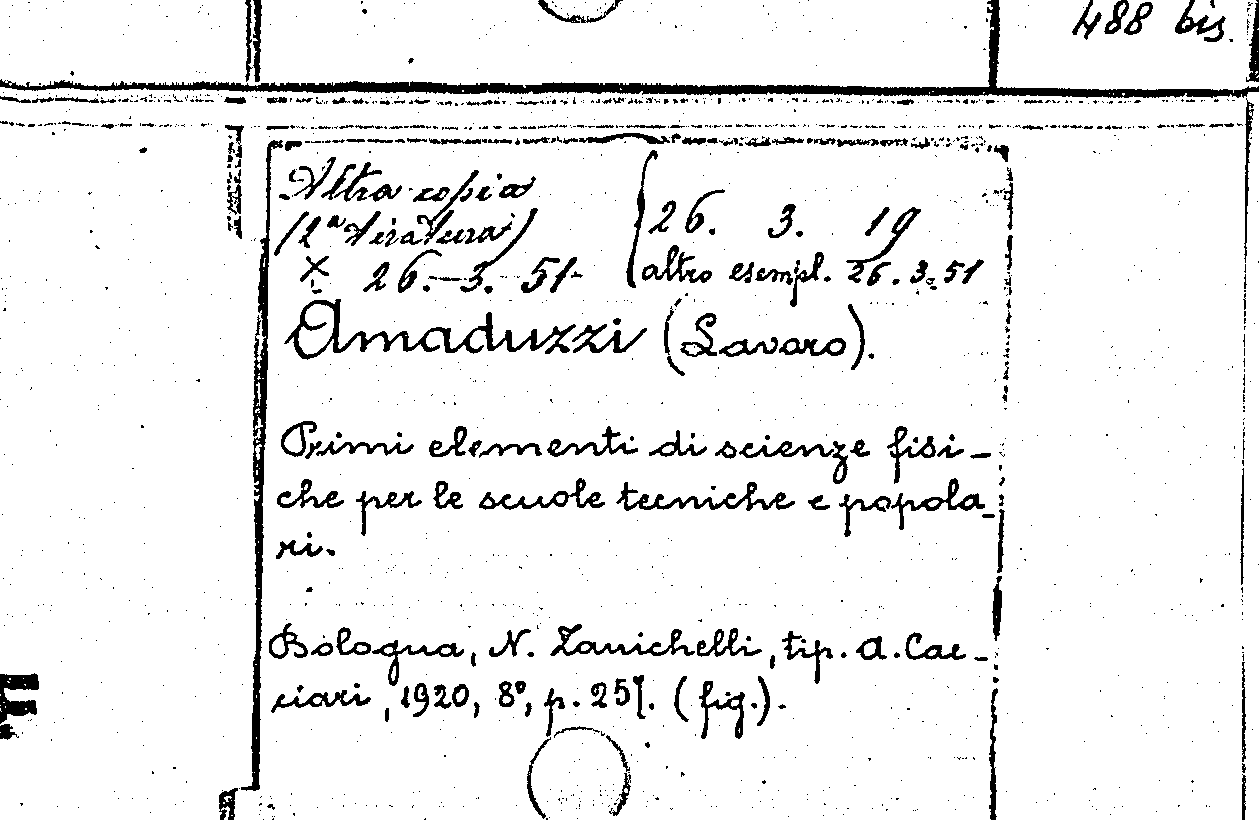 488 bis.
Altra copia
(2ª tiratura)
× 26. 3. 51
26. 3. 19
altro esempl. 26. 3. 51
Amaduzzi (Lavoro).
Primi elementi di scienze fisi-
che per le scuole tecniche e popola-
ri.
Bologna, N. Zanichelli, tip. A. Cac-
ciari, 1920, 8°, p. 251. (fig.).